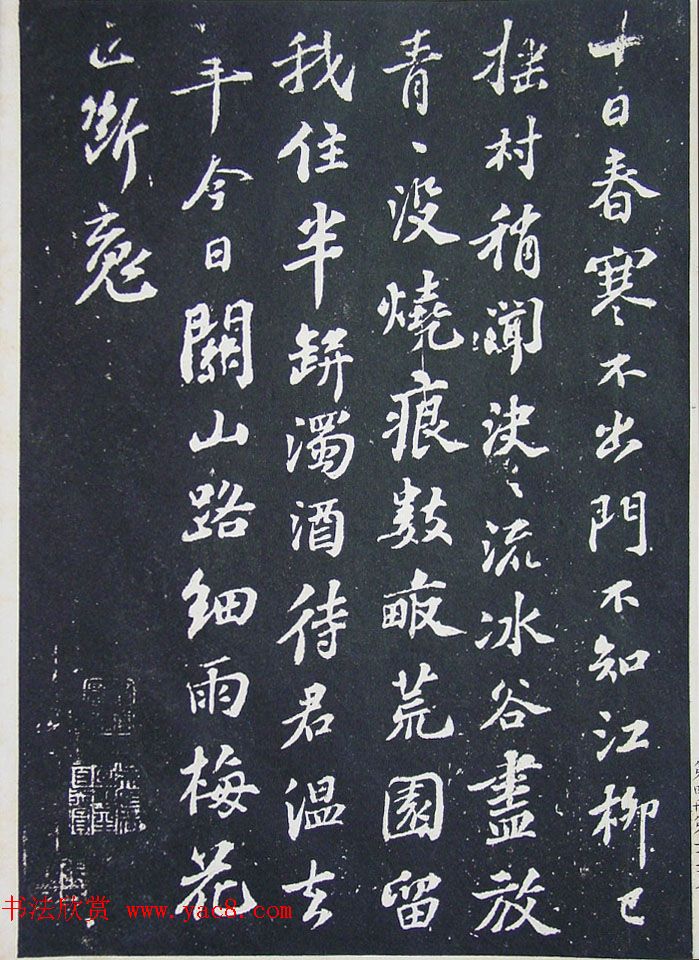 十日春寒不出門不知江柳已
摇村稍聞决〻流冰谷盡放
青〻没燒痕數畝荒園留
我住半缾濁酒待君温去
年今日關山路細雨梅花
正斷䰟
书法欣赏 www.yac8.com